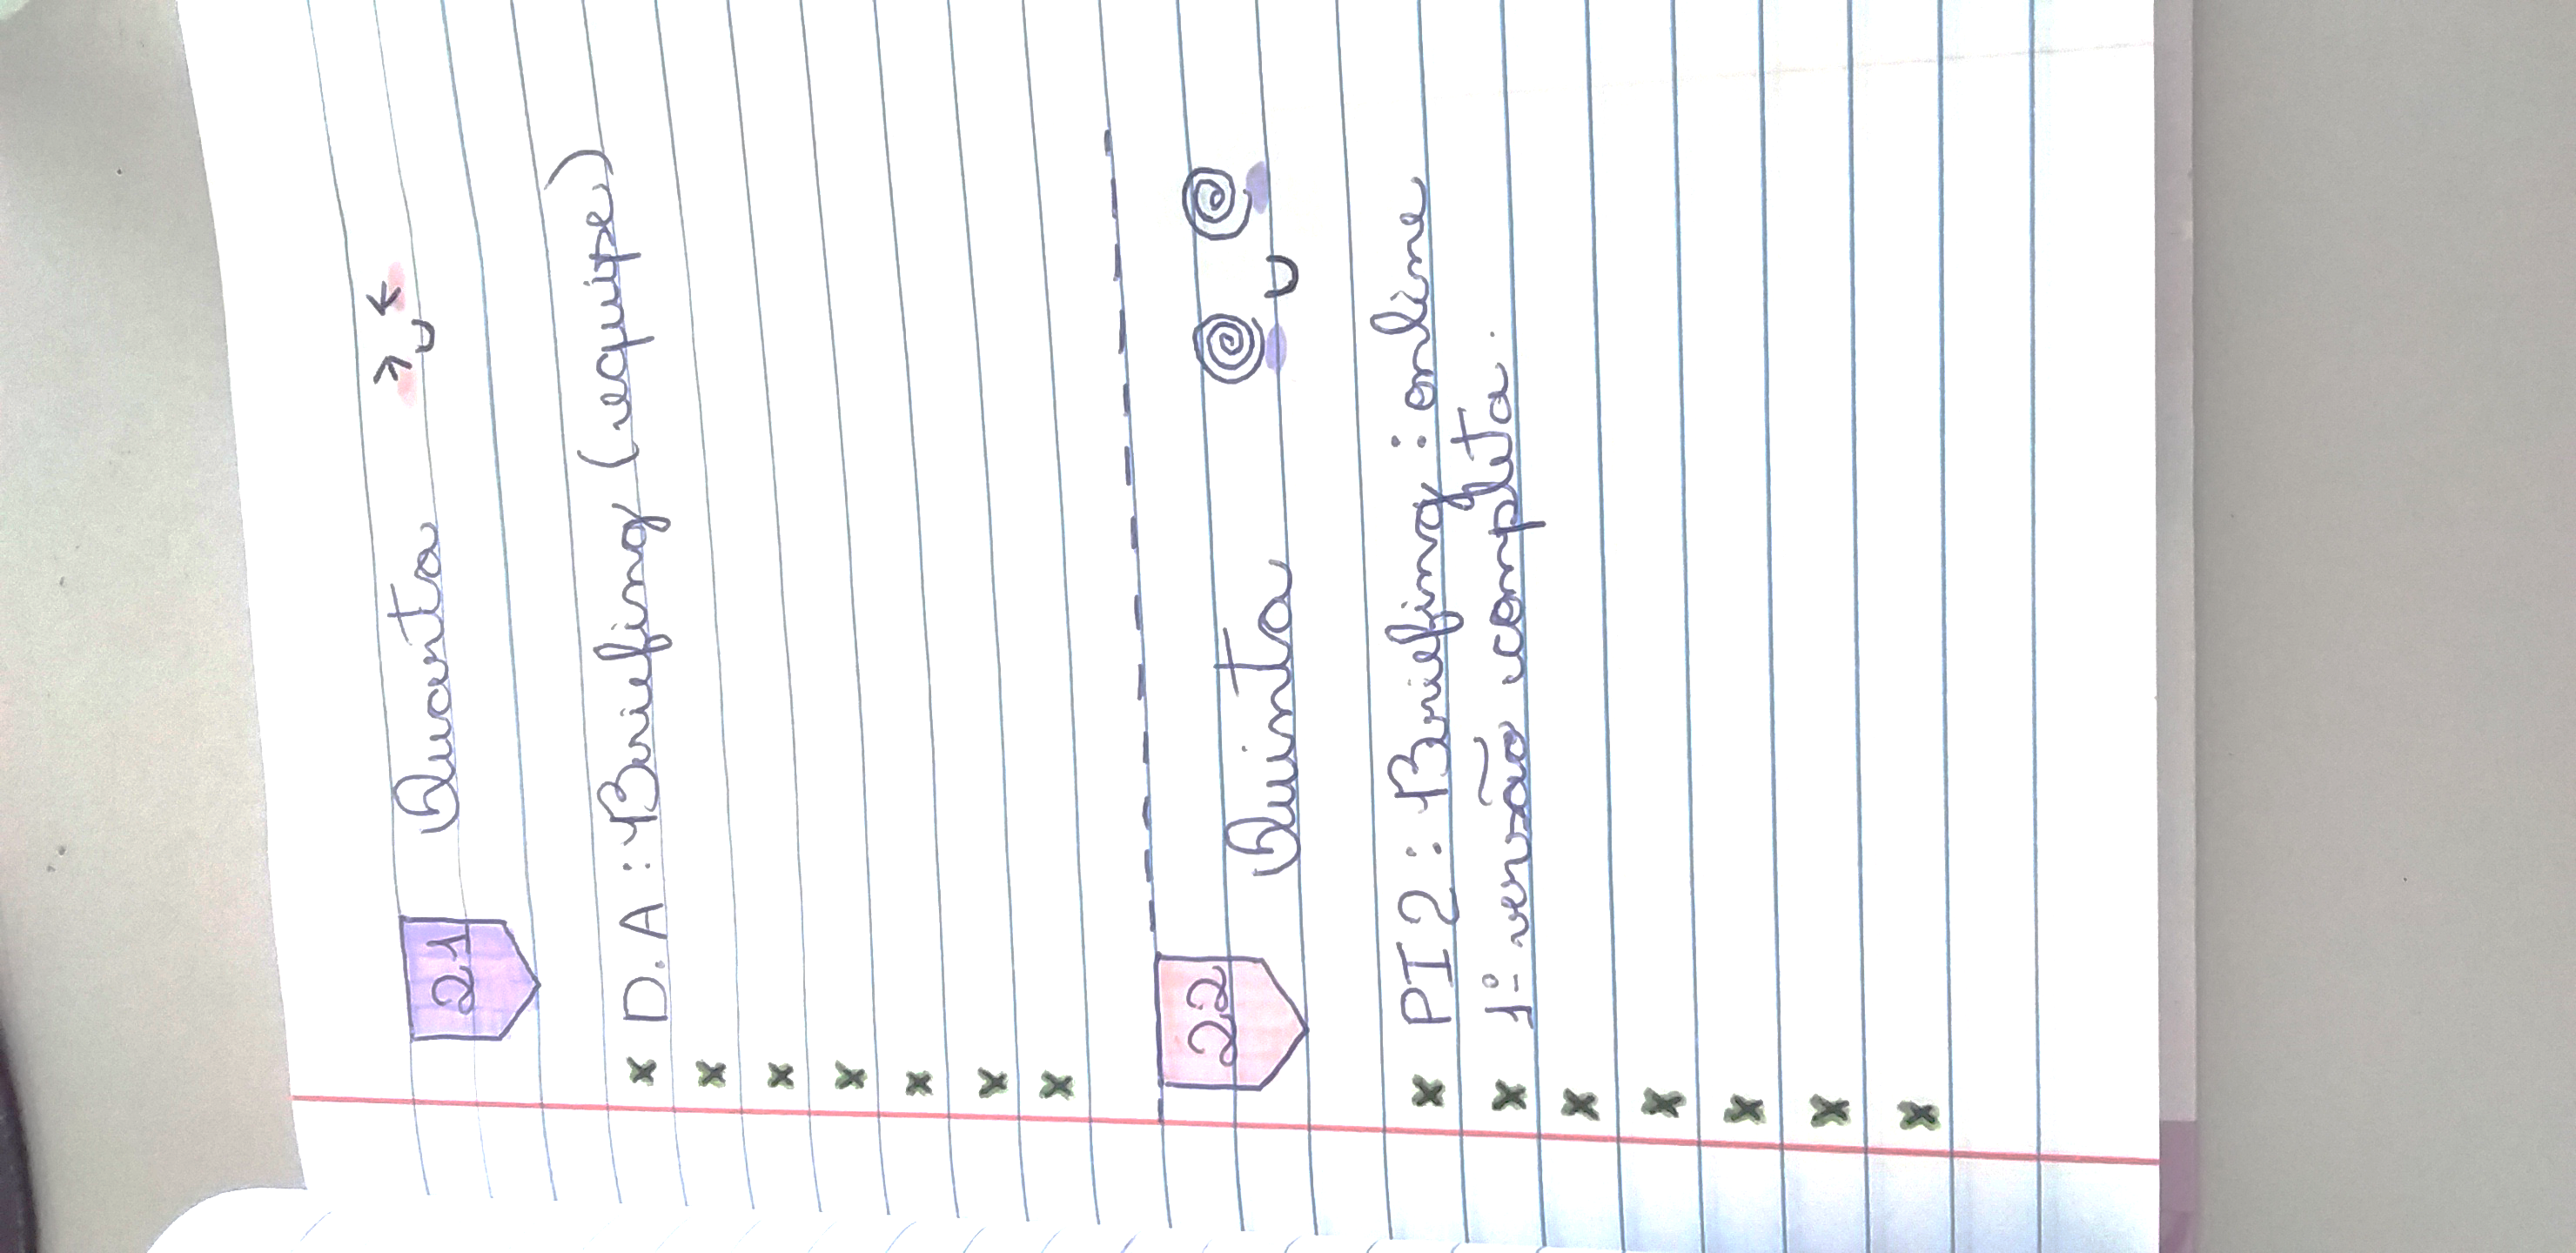 21 Quarta
x D.A: Briefing (equipe)
x
x
x
x
x
x
22 Quinta
x PI2: Briefing: online
x 1º versão completa.
x
x
x
x
x